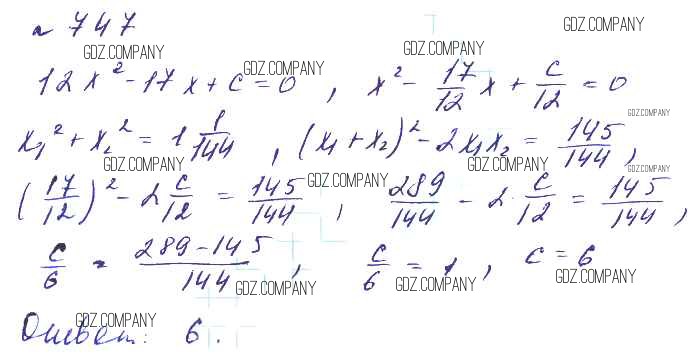 № 747
GDZ.COMPANY GDZ.COMPANY GDZ.COMPANY
12x² - 17x + c = 0, x² - 17/12 x + c/12 = 0
GDZ.COMPANY GDZ.COMPANY
x₁² + x₂² = 1 1/144, (x₁ + x₂)² - 2x₁x₂ = 145/144,
GDZ.COMPANY GDZ.COMPANY GDZ.COMPANY GDZ.COMPANY
(17/12)² - 2 c/12 = 145/144, 289/144 - 2 · c/12 = 145/144,
c/6 = 289-145/144, c/6 = 1, c = 6
GDZ.COMPANY GDZ.COMPANY GDZ.COMPANY
Ответ: 6.
GDZ.COMPANY